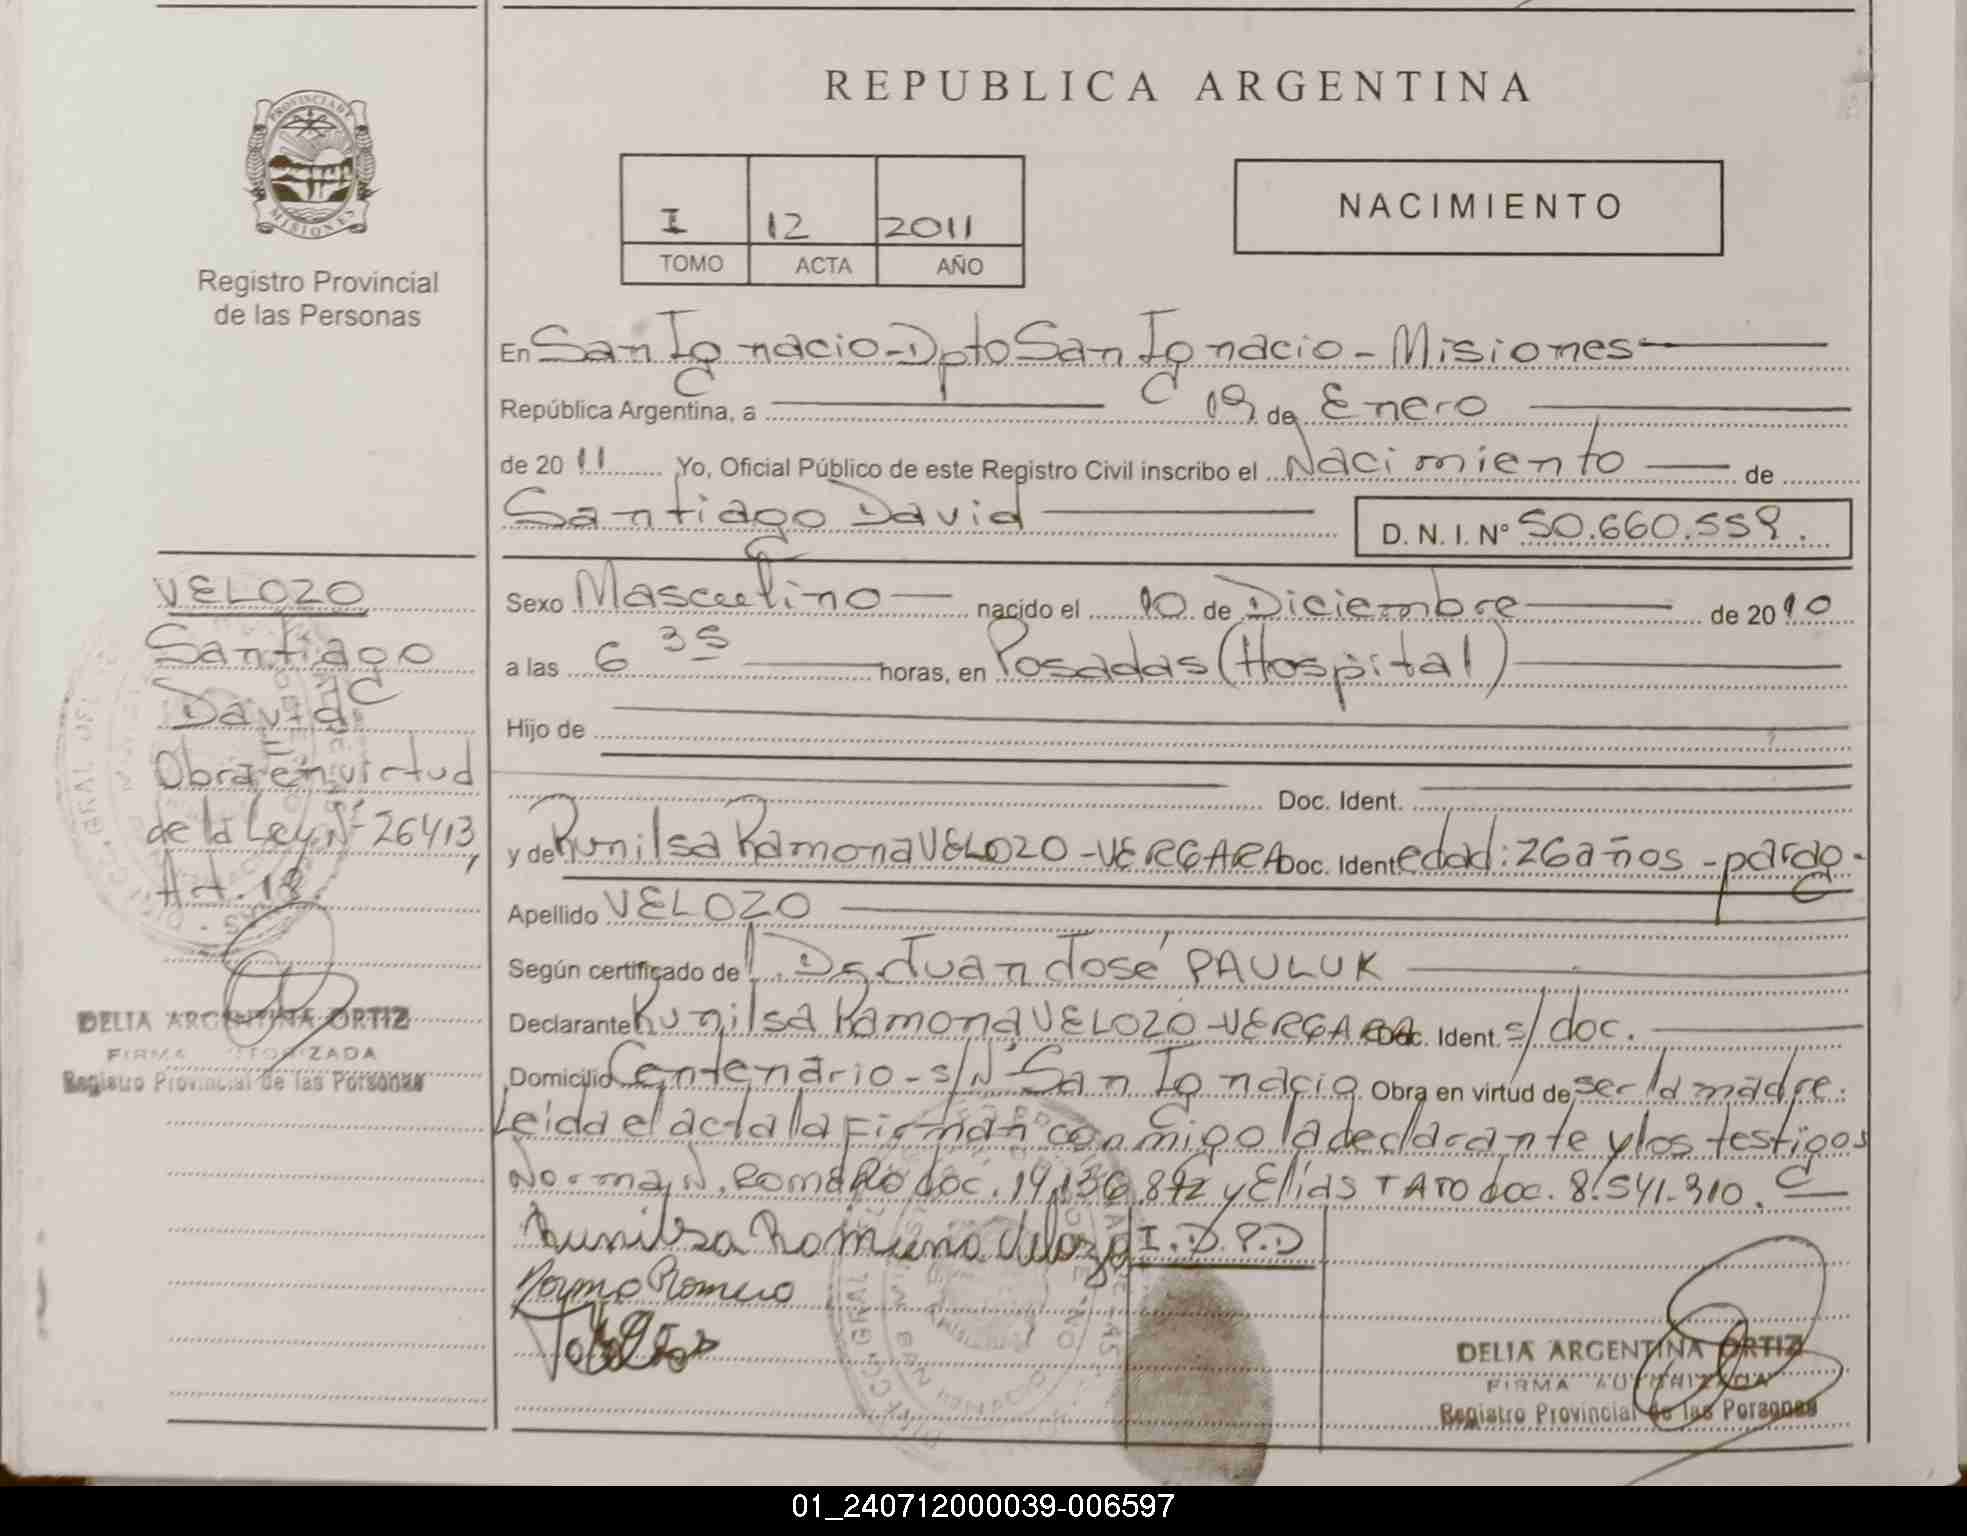 REPUBLICA ARGENTINA
PROVINCIA DE
MISIONES
Registro Provincial
de las Personas
I 12 2011
TOMO ACTA AÑO
NACIMIENTO
En San Ignacio - Dpto San Ignacio - Misiones
República Argentina, a 19 de Enero
de 2011 Yo, Oficial Público de este Registro Civil inscribo el Nacimiento de
Santiago David
D. N. I. Nº 50.660.559.
Sexo Masculino nacido el 10 de Diciembre de 2010
a las 6 35 horas, en Posadas (Hospital)
Hijo de
Doc. Ident.
y de Runilsa Ramona VELOZO - VERGARA Doc. Ident. edad: 26 años - pardo -
Apellido VELOZO
Según certificado del Dr. Juan José PAULUK
Declarante Runilsa Ramona VELOZO - VERGARA Doc. Ident. s/doc.
Domicilio Centenario - s/Nº San Ignacio Obra en virtud de ser la madre.
Leida el acta la Firman conmigo la declarante y los testigos
Norma N. ROMERO doc. 14.136.872 y Elías TATO doc. 8.541.310.
Runilsa Ramona Velozo I.D.P.D
Norma Romero
VELOZO
Santiago
David
Obra en virtud
de la Ley Nº 26413,
Art. 18.
DELIA ARGENTINA ORTIZ
FIRMA AUTORIZADA
Registro Provincial de las Personas
DELIA ARGENTINA ORTIZ
FIRMA AUTORIZADA
Registro Provincial de las Personas
01_240712000039-006597